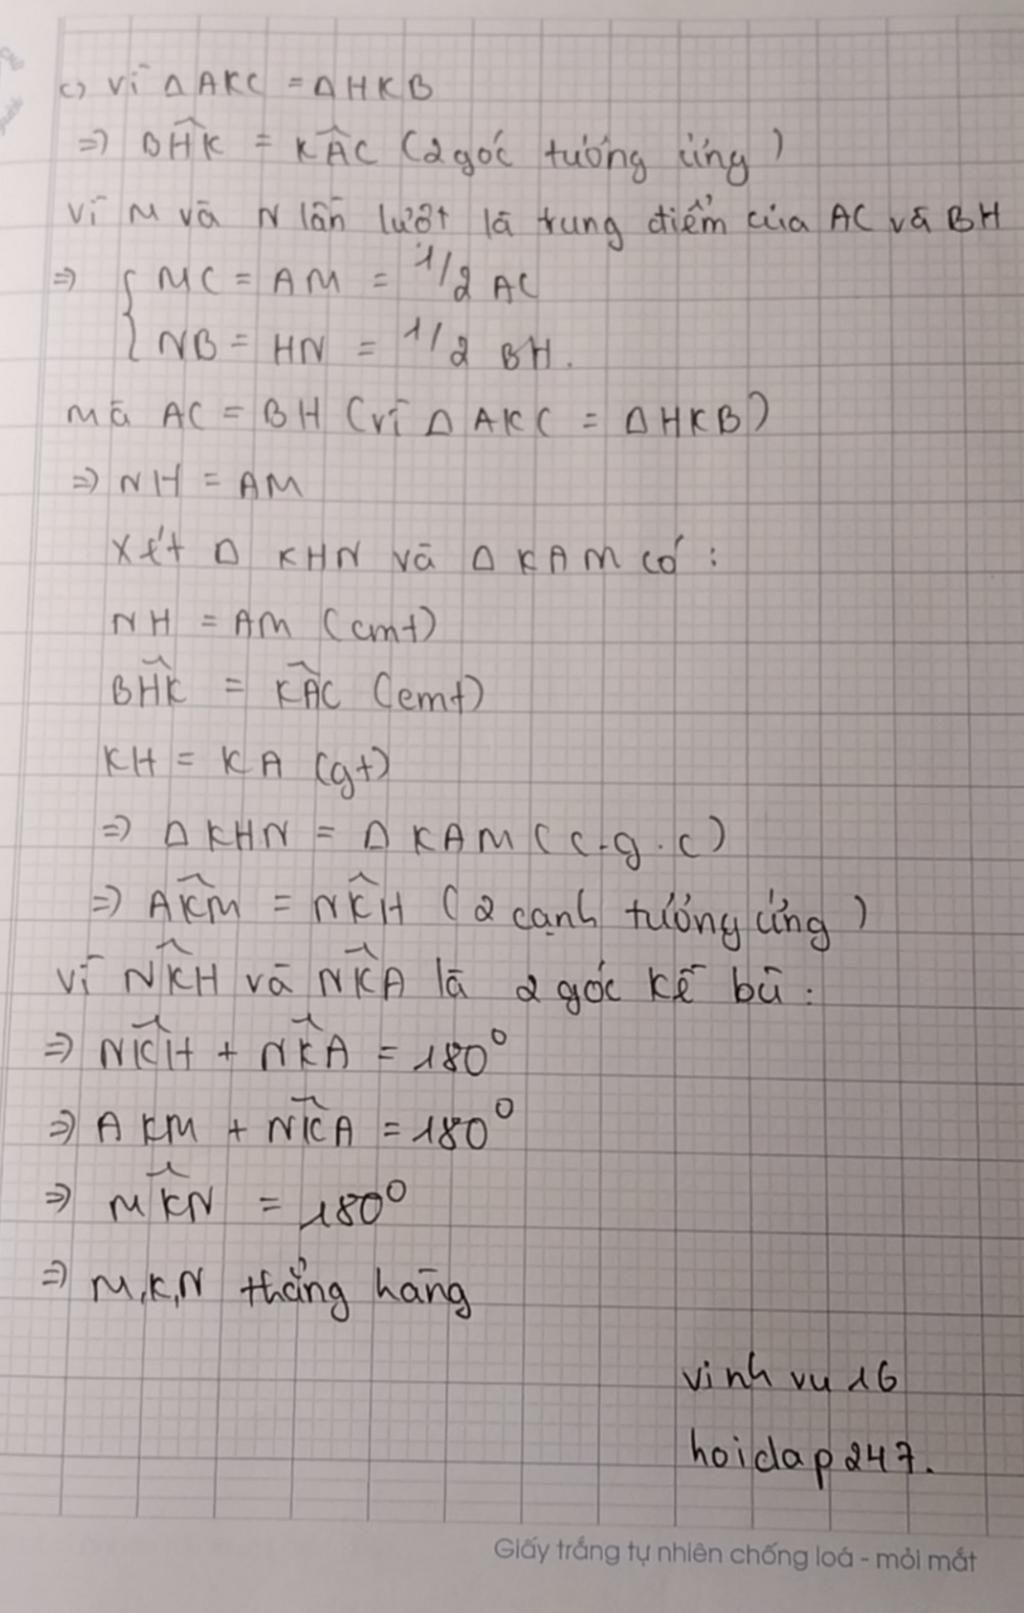 c) Vì Δ AKC = Δ HKB
=> BĤK = KÂC (2 góc tương ứng)
Vì M và N lần lượt là trung điểm của AC và BH
=> { MC = AM = 1/2 AC
NB = HN = 1/2 BH.
mà AC = BH (vì Δ AKC = Δ HKB)
=> NH = AM
Xét Δ KHN và Δ KAM có :
NH = AM (cmt)
BĤK = KÂC (cmt)
KH = KA (gt)
=> Δ KHN = Δ KAM (c.g.c)
=> AK̂M = NK̂H (2 cạnh tương ứng)
Vì NK̂H và NK̂A là 2 góc kề bù :
=> NK̂H + NK̂A = 180°
=> AKM + NK̂A = 180°
=> MK̂N = 180°
=> M,K,N thẳng hàng
vinh vu 16
hoidap247.
Giấy trắng tự nhiên chống loá - mỏi mắt